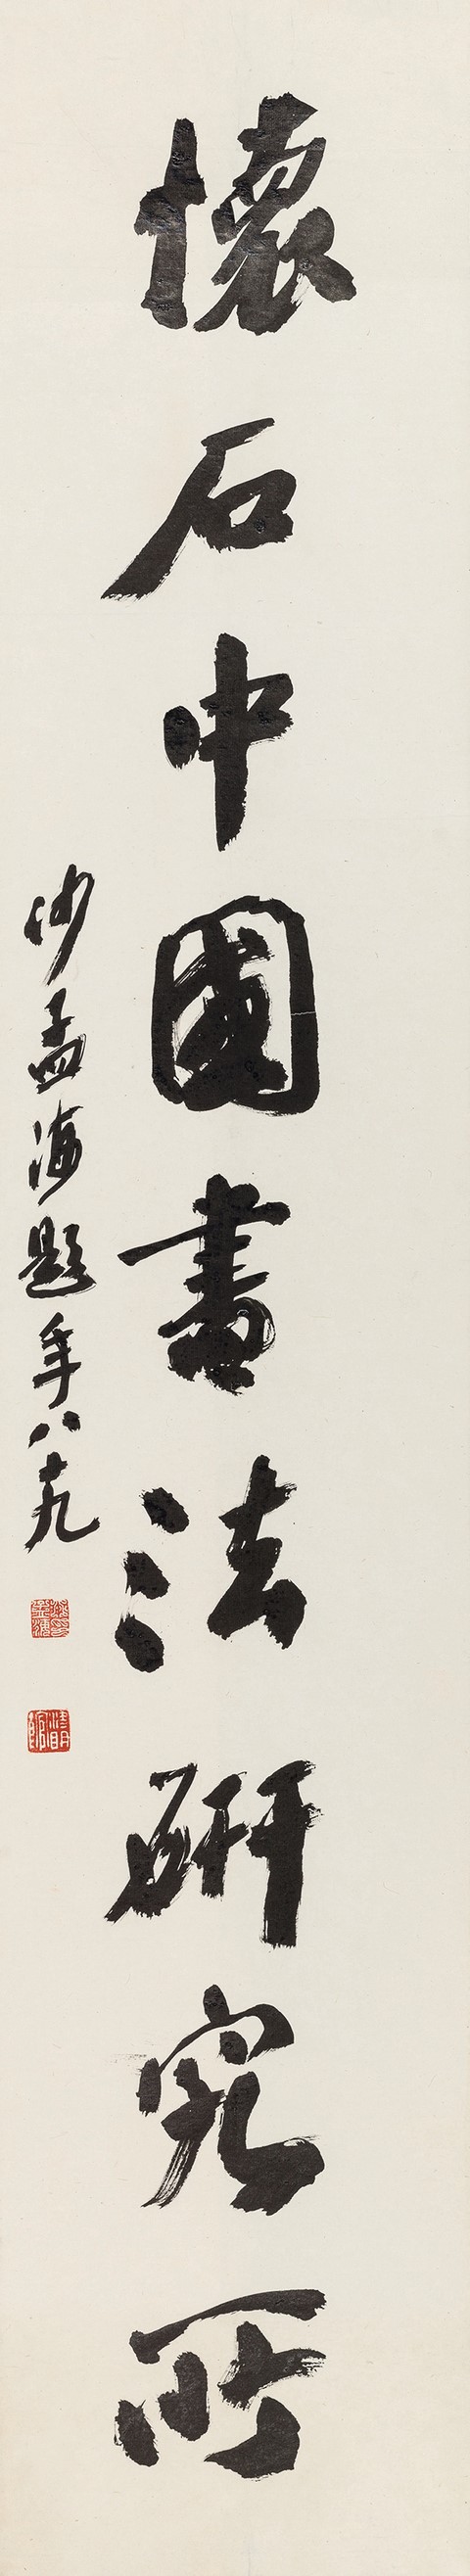 懷石中國書法研究所
沙孟海題年八十九